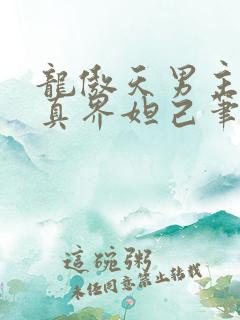 龍傲天男主
真界妲己筆
這碗粥
未经同意禁止转载